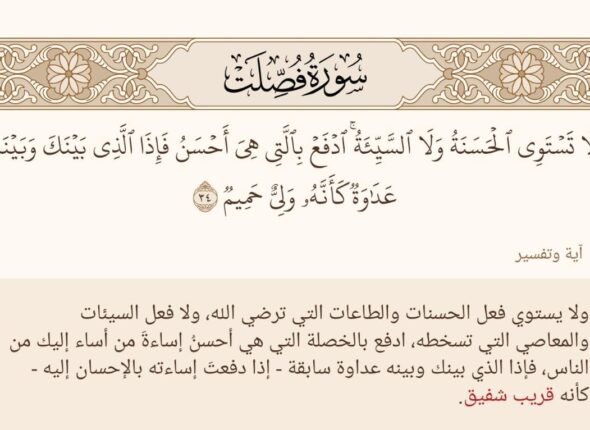 سُورَةُ فُصِّلَتْ
لَا تَسْتَوِى ٱلْحَسَنَةُ وَلَا ٱلسَّيِّئَةُ ۚ ٱدْفَعْ بِٱلَّتِى هِىَ أَحْسَنُ فَإِذَا ٱلَّذِى بَيْنَكَ وَبَيْنَ
عَدَٰوَةٌ كَأَنَّهُۥ وَلِىٌّ حَمِيمٌ ٣٤
آية وتفسير
ولا يستوي فعل الحسنات والطاعات التي ترضي الله، ولا فعل السيئات
والمعاصي التي تسخطه، ادفع بالخصلة التي هي أحسنُ إساءةَ من أساء إليك من
الناس، فإذا الذي بينك وبينه عداوة سابقة - إذا دفعتَ إساءته بالإحسان إليه -
كأنه قريب شفيق.